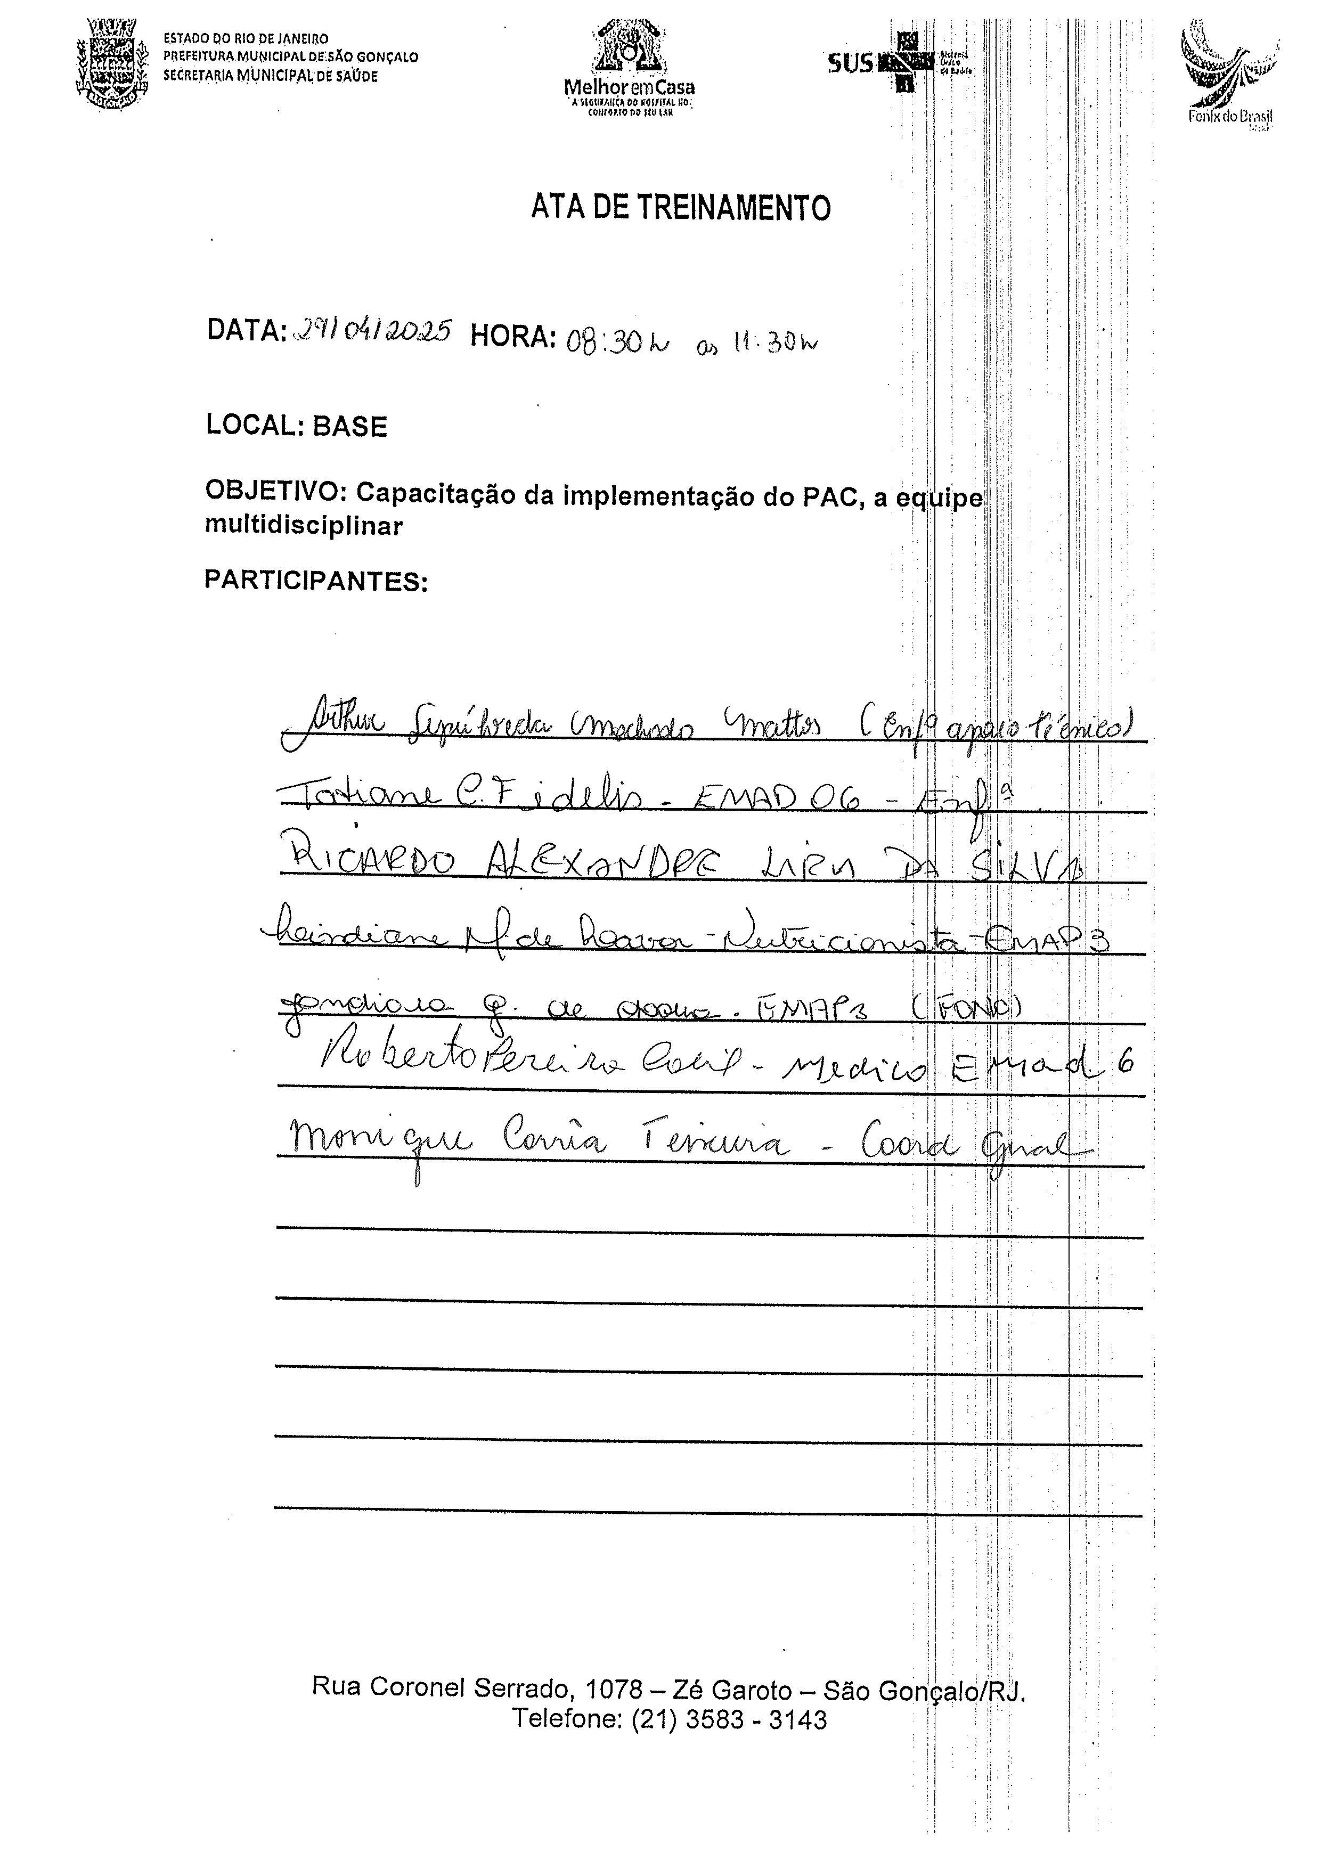 ESTADO DO RIO DE JANEIRO
PREFEITURA MUNICIPAL DE SÃO GONÇALO
SECRETARIA MUNICIPAL DE SAÚDE
Melhor em Casa
A SEGURANÇA DO HOSPITAL NO
CONFORTO DO SEU LAR
SUS
Fenix do Brasil
ATA DE TREINAMENTO
DATA: 29/04/2025 HORA: 08:30h as 11:30h
LOCAL: BASE
OBJETIVO: Capacitação da implementação do PAC, a equipe
multidisciplinar
PARTICIPANTES:
Arthur Sepúlveda Machado Mattos (Enfº apoio técnico)
Tatiane C. Fidelis - EMAD 06 - Enfª
RICARDO ALEXANDRE LIRA DA SILVA
M. de - Nutricionista - EMAP3
de EMAP3 (FONO)
Roberto Pereira - Medico Emad 6
Monique Corrêa Teixeira - Coord Geral
Rua Coronel Serrado, 1078 – Zé Garoto – São Gonçalo/RJ.
Telefone: (21) 3583 - 3143